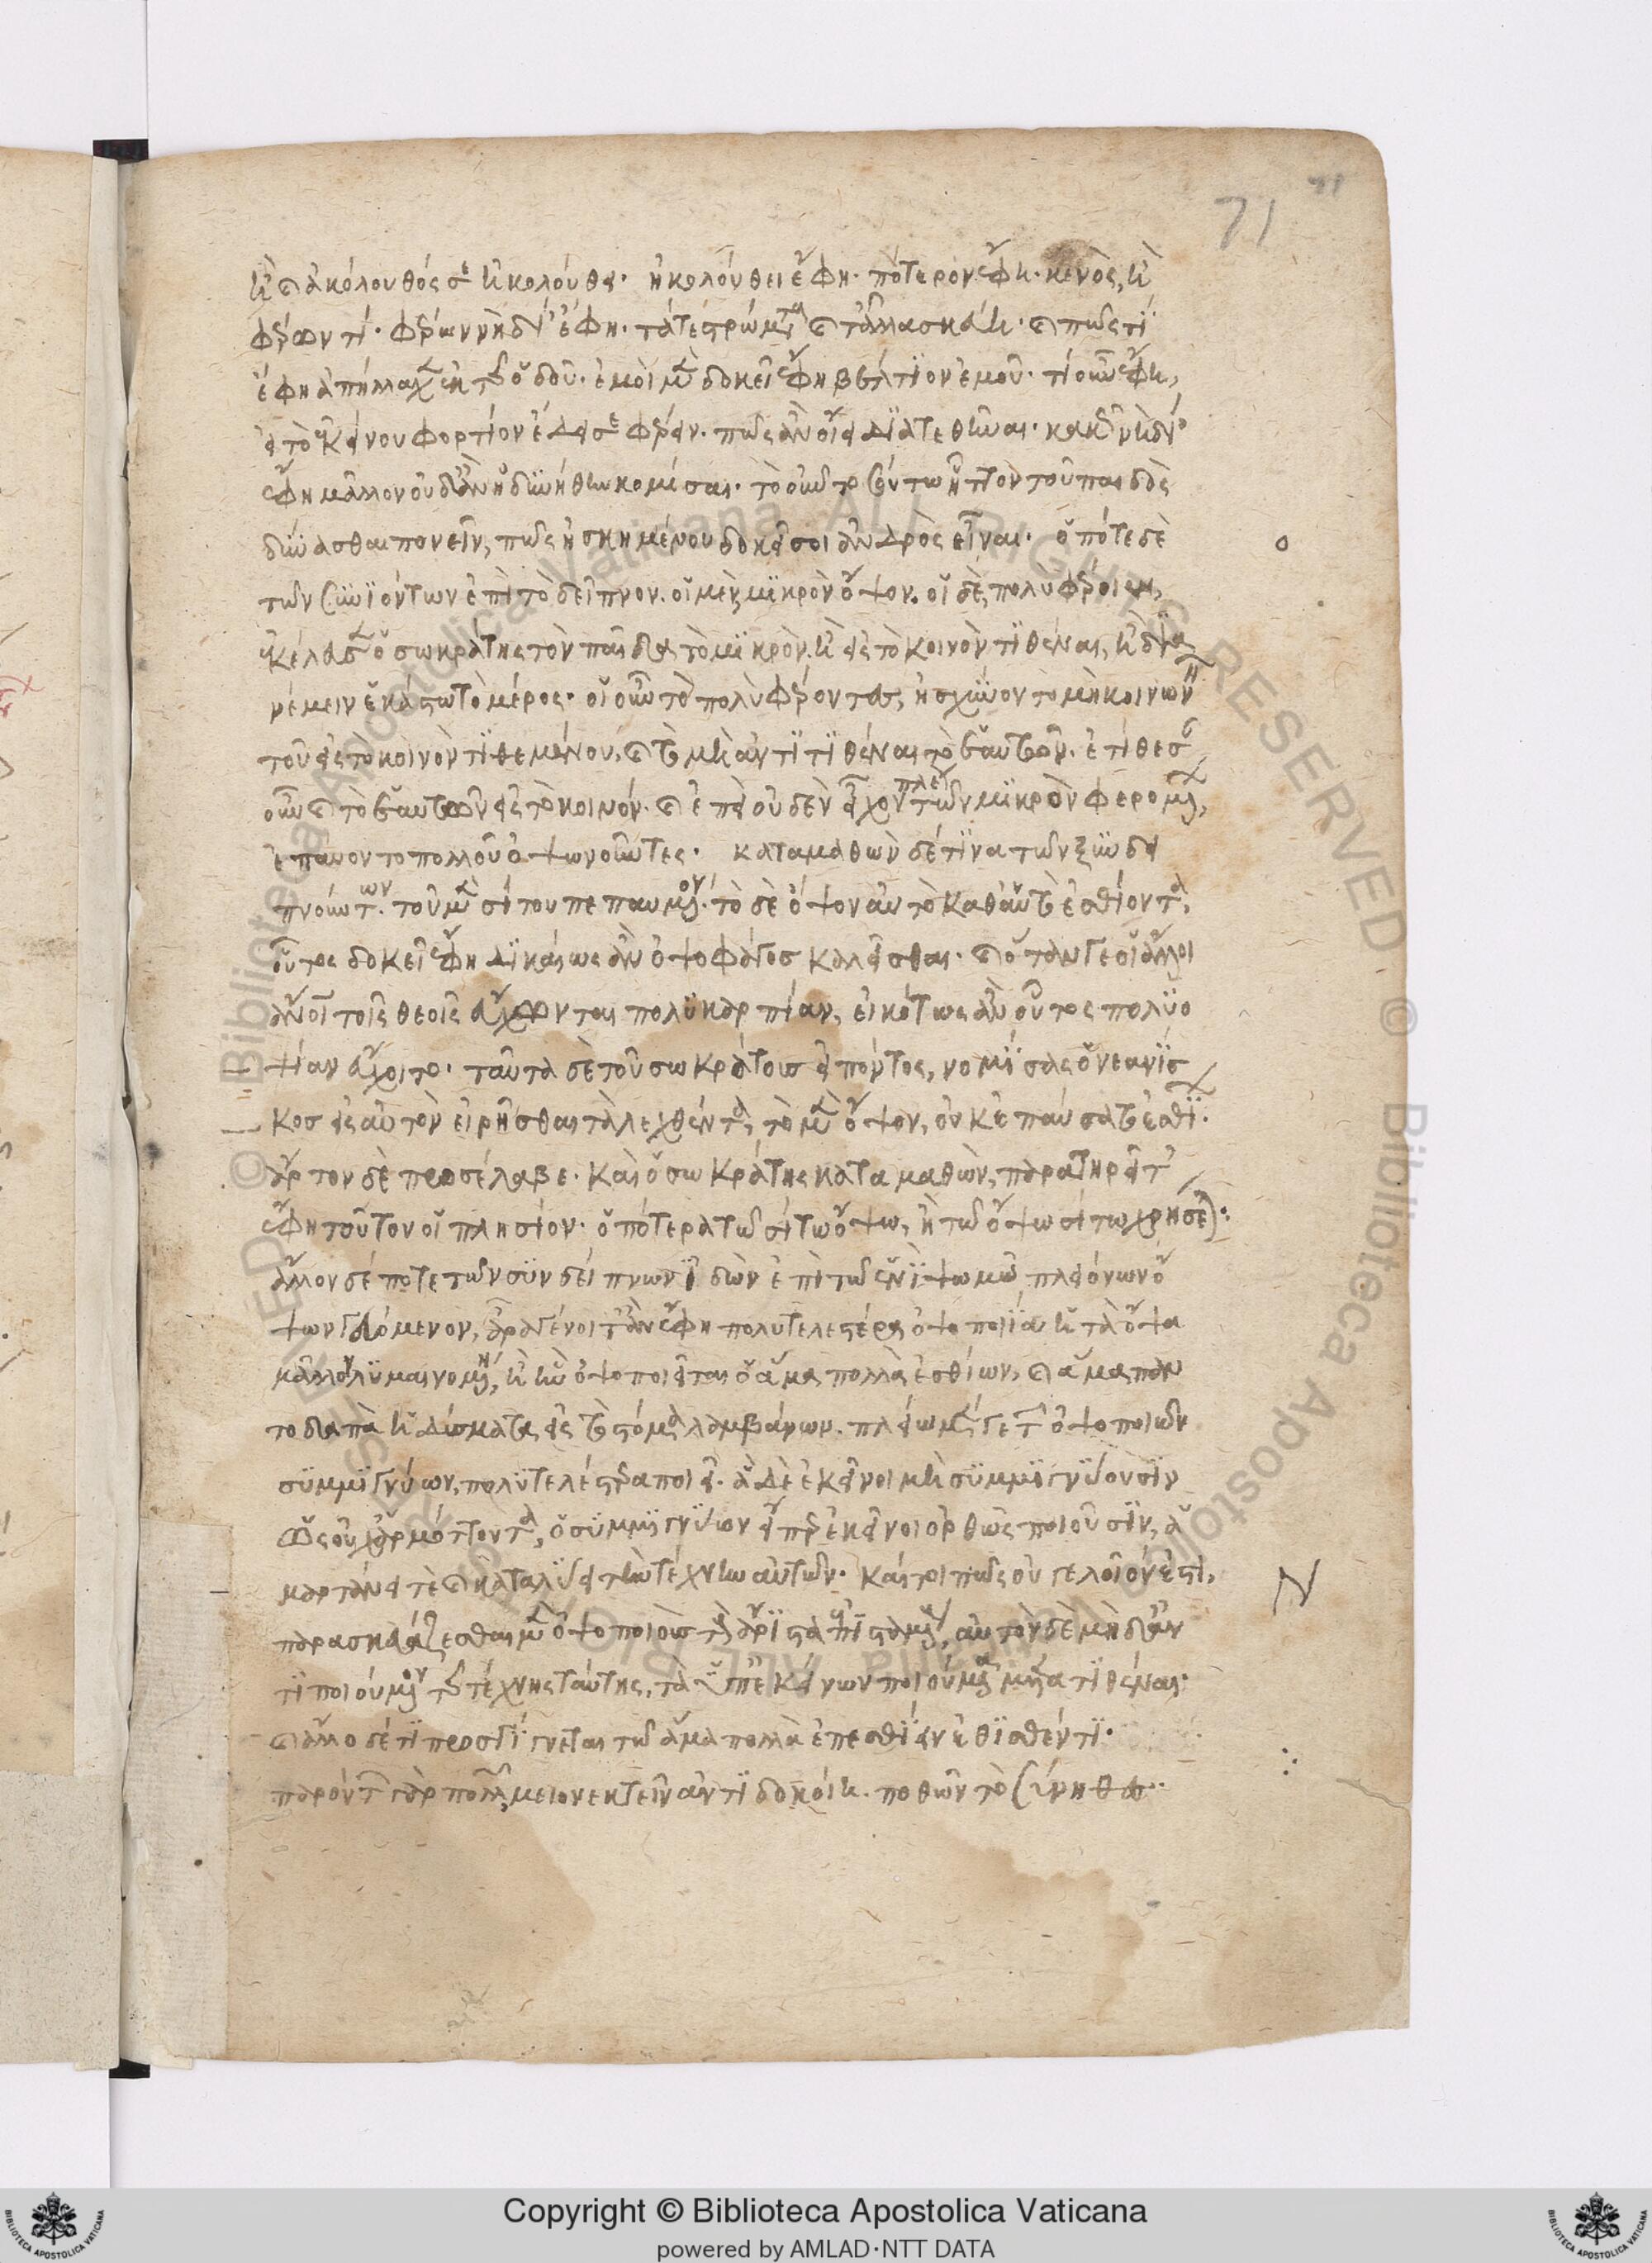 71
ἢ καὶ ἀκόλουθός σοι ἠκολούθει· ἠκολούθει ἔφη· πότερον ἔφη· κενὸς, ἢ
φέρων τί· φέρων νὴ δί' ἔφη· τά τε στρώματα καὶ τἄλλα σκεύη· καὶ πῶς τί
ἔφη ἀπήλλαχεν ἐκ τῆς ὁδοῦ· ἐμοὶ μὲν δοκεῖ ἔφη βέλτιον ἐμοῦ· τί οὖν ἔφη,
εἰ τὸ ἐκείνου φορτίον ἔδει σε φέρειν· πῶς ἂν οἴει διατεθῆναι· κακῶς νὴ δί'
ἔφη μᾶλλον οὐδ' ἂν ἠδυνήθην κομίσαι· τὸ οὖν τοσούτω ἧττον τοῦ παιδὸς
δύνασθαι πονεῖν, πῶς ἠσκημένου δοκεῖ σοι ἀνδρὸς εἶναι· ὁπότε δὲ
τῶν συνϊόντων ἐπὶ τὸ δεῖπνον. οἱ μὲν μικρὸν ὄψον. οἱ δὲ, πολὺ φέροιεν,
ἐκέλευεν ὁ σωκράτης τὸν παῖδα τὸ μικρὸν. ἢ εἰς τὸ κοινὸν τιθέναι, ἢ δια
νέμειν ἑκάστω τὸ μέρος· οἱ οὖν τὸ πολὺ φέροντες, ἠσχύνοντο μὴ κοινωνεῖν
τοῦ εἰς τὸ κοινὸν τιθεμένου, καὶ τὸ μὴ ἀντιτιθέναι τὸ ἑαυτῶν. ἐτίθεσαν
οὖν καὶ τὸ ἑαυτῶν εἰς τὸ κοινόν. καὶ ἐπεὶ οὐδὲν πλεῖον εἶχον τῶν μικρὸν φερομένων,
ἐπαύοντο πολλοῦ ὀψωνοῦντες· καταμαθὼν δέ τινα τῶν ξυνδει
πνούντων. τοῦ μὲν σίτου πεπαυμένον. τὸ δὲ ὄψον αὐτὸ καθ' αὑτὸ ἐσθίοντα,
οὗτος δοκεῖ ἔφη δικαίως ἂν ὀψοφάγος καλεῖσθαι· καὶ ὅταν γε οἱ ἄλλοι
ἄνθρωποι τοῖς θεοῖς εὔχωνται πολυκαρπίαν, εἰκότως ἂν οὗτος πολυο
ψίαν εὔχοιτο· ταῦτα δὲ τοῦ σωκράτους εἰπόντος, νομίσας ὁ νεανίσ
κος εἰς αὐτὸν εἰρῆσθαι τὰ λεχθέντα, τὸ μὲν ὄψον, οὐκ ἐπαύσατο ἐσθίων.
ἄρτον δὲ προσέλαβε· καὶ ὁ σωκράτης καταμαθὼν, παρατηρεῖτ'
ἔφη τοῦτον οἱ πλησίον· ὁπότερα τῶ σίτω ὄψω, ἢ τῶ ὄψω σίτω χρήσεται·
ἄλλον δέ ποτε τῶν συνδείπνων ἰδὼν ἐπὶ τῶ ἑνὶ ψωμῶ πλειόνων ὄ
ψων γευόμενον, ἆρα γένοιτ' ἂν ἔφη πολυτελεστέρα ὀψοποιία ἢ τὰ ὄψα
μᾶλλον λυμαινομένη, ἢ ἣν ὀψοποιεῖται ὁ ἅμα πολλὰ ἐσθίων, καὶ ἅμα παν
τοδαπὰ ἡδύσματα εἰς τὸ στόμα λαμβάνων. πλείω μέν γε τῶν ὀψοποιῶν
συμμιγνύων, πολυτελέστερα ποιεῖ. ἃ δὲ ἐκεῖνοι μὴ συμμιγνύουσιν
ὡς οὐχ ἁρμόττοντα, ὁ συμμιγνύων εἴπερ ἐκεῖνοι ὀρθῶς ποιοῦσιν, ἁ
μαρτάνει τε καὶ καταλύει τὴν τέχνην αὐτῶν· καίτοι πῶς οὐ γελοῖόν ἐστι,
παρασκευάζεσθαι μὲν ὀψοποιοὺς τοὺς ἄριστα ἐπισταμένους, αὐτὸν δὲ μηδ' ἀν
τιποιούμενον τῆς τέχνης ταύτης, τὰ ὑπ' ἐκείνων ποιούμενα μετατιθέναι·
καὶ ἄλλο δέ τι προσγίγνεται τῶ ἅμα πολλὰ ἐπεσθίειν ἐθισθέντι·
παρόντων γὰρ πολλῶν, μειονεκτεῖν ἄν τι δοκοίη. ποθῶν τὸ σύνηθες·
Copyright © Biblioteca Apostolica Vaticana
powered by AMLAD·NTT DATA